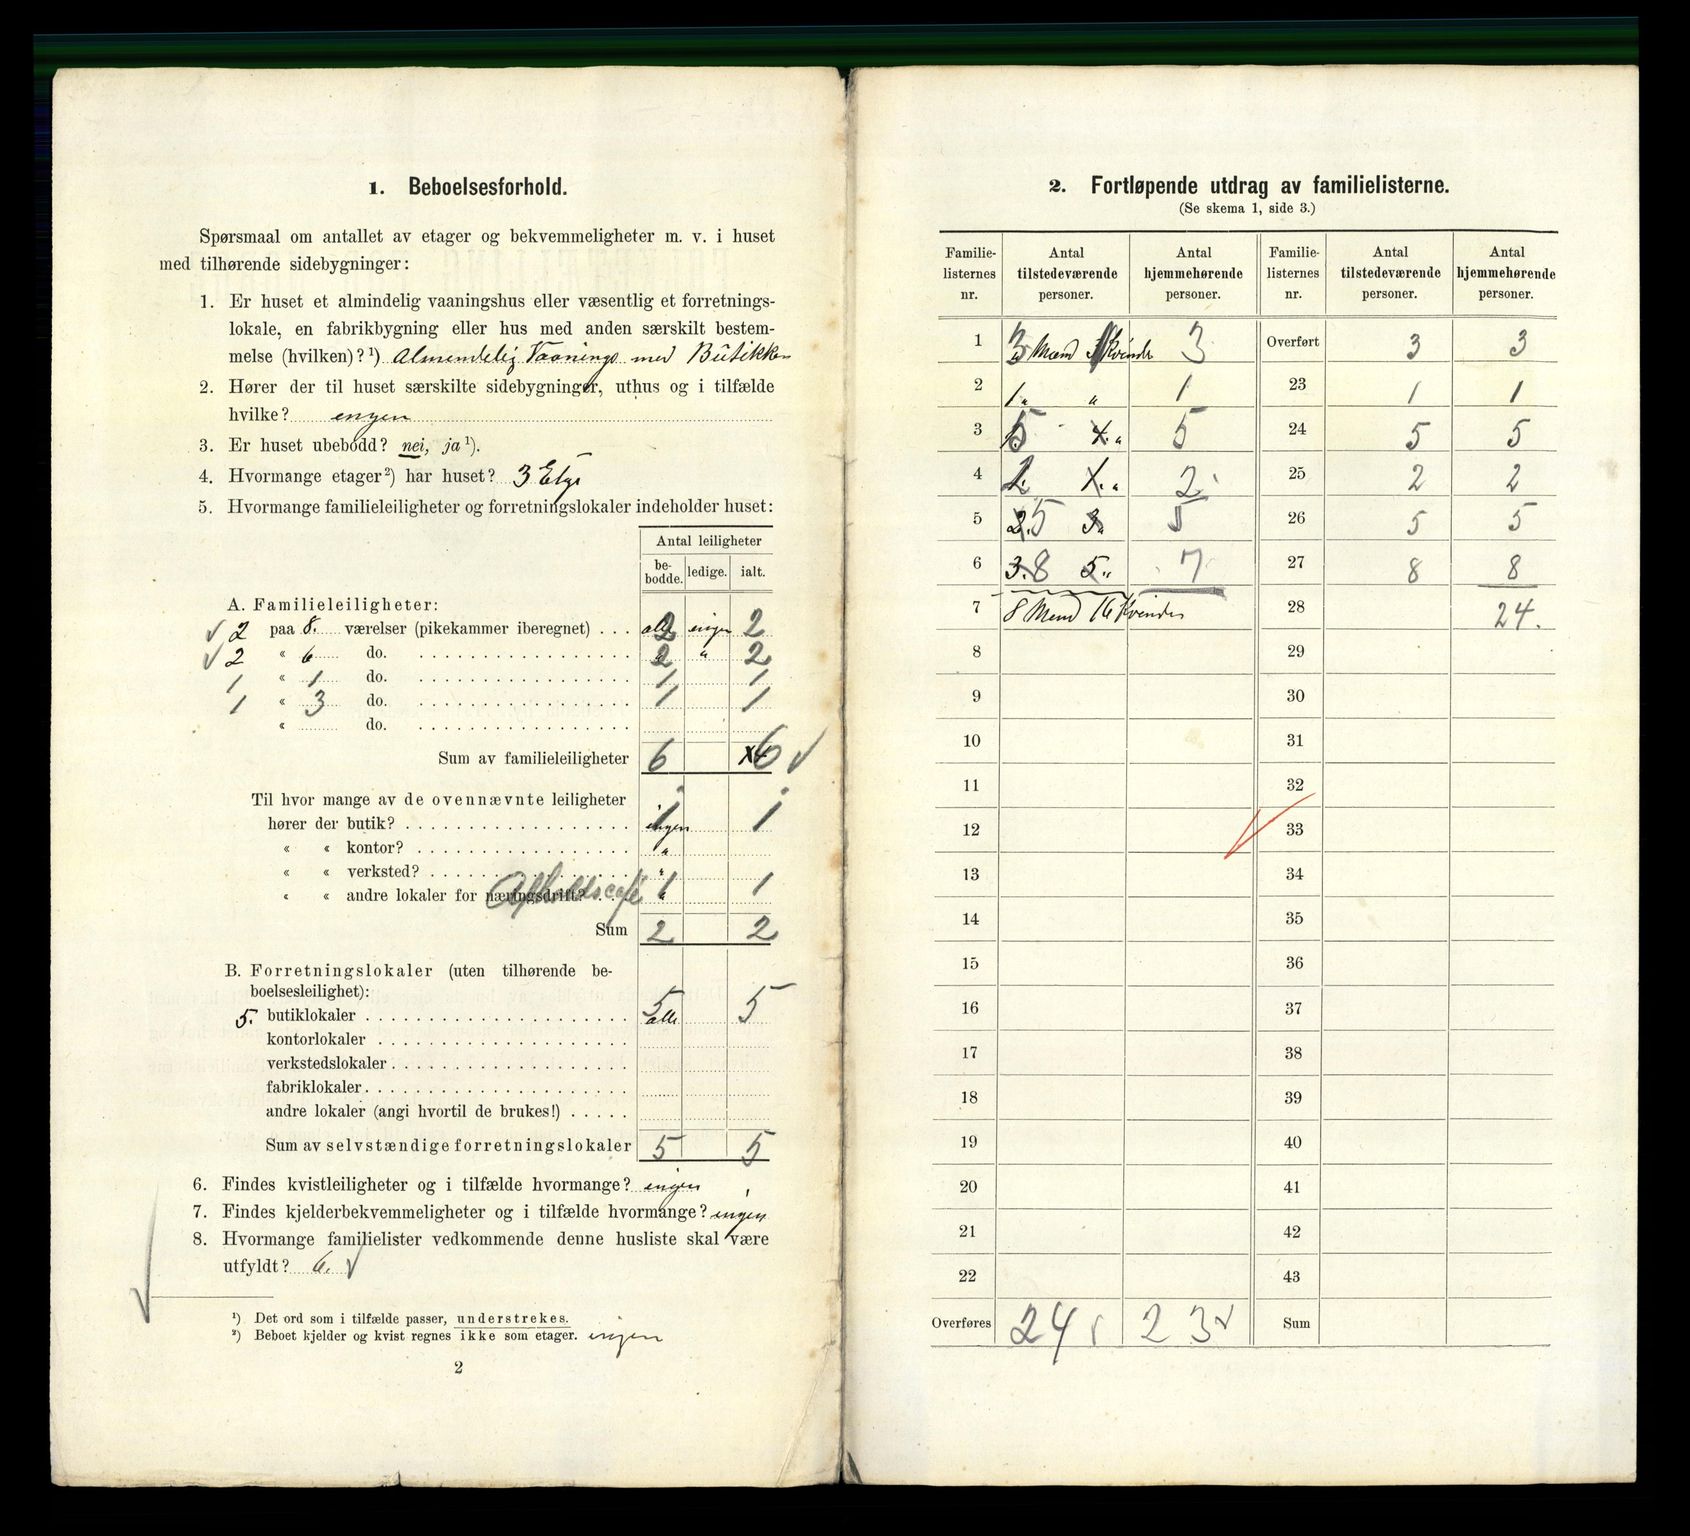 1. Beboelsesforhold.
Spørsmaal om antallet av etager og bekvemmeligheter m. v. i huset
med tilhørende sidebygninger:
1. Er huset et almindelig vaaningshus eller væsentlig et forretnings-
lokale, en fabrikbygning eller hus med anden særskilt bestem-
melse (hvilken)?¹) Almendelig Vaanings med Butikker
2. Hører der til huset særskilte sidebygninger, uthus og i tilfælde
hvilke? engen
3. Er huset ubebodd? nei, ja¹).
4. Hvormange etager²) har huset? 3 Etge
5. Hvormange familieleiligheter og forretningslokaler indeholder huset:
Antal leiligheter
be-bodde. ledige. ialt.
A. Familieleiligheter:
2 paa 8. værelser (pikekammer iberegnet) . . . alle 2 ingen 2
2 « 6 do. 2 " 2
1 « 1 do. 1 1
1 « 3 do. 1 1
« do.
Sum av familieleiligheter 6 6
Til hvor mange av de ovennævnte leiligheter
hører der butik? ingen 1 1
« « kontor? "
« « verksted? "
« « andre lokaler for næringsdrift? Afholdscafé 1 1
Sum 2 2
B. Forretningslokaler (uten tilhørende be-
boelsesleilighet):
5. butiklokaler 5 alle 5
kontorlokaler
verkstedslokaler
fabriklokaler
andre lokaler (angi hvortil de brukes!)
Sum av selvstændige forretningslokaler 5 5
6. Findes kvistleiligheter og i tilfælde hvormange? ingen
7. Findes kjelderbekvemmeligheter og i tilfælde hvormange? ingen
8. Hvormange familielister vedkommende denne husliste skal være
utfyldt? 6.
¹) Det ord som i tilfælde passer, understrekes.
²) Beboet kjelder og kvist regnes ikke som etager. ingen
2
2. Fortløpende utdrag av familielisterne.
(Se skema 1, side 3.)
Familie-listernes nr. Antal tilstedeværende personer. Antal hjemmehørende personer. Familie-listernes nr. Antal tilstedeværende personer. Antal hjemmehørende personer.
1 3 Mænd Kvinder 3 Overført 3 3
2 1 " " 1 23 1 1
3 5 4. " 5 24 5 5
4 2 1. " 2 25 2 2
5 2. 5 3 " 5 26 5 5
6 3. 8 5 " 7 27 8 8
7 8 Mend 16 Kvinder 28 24.
8 29
9 30
10 31
11 32
12 33
13 34
14 35
15 36
16 37
17 38
18 39
19 40
20 41
21 42
22 43
Overføres 24 23 Sum